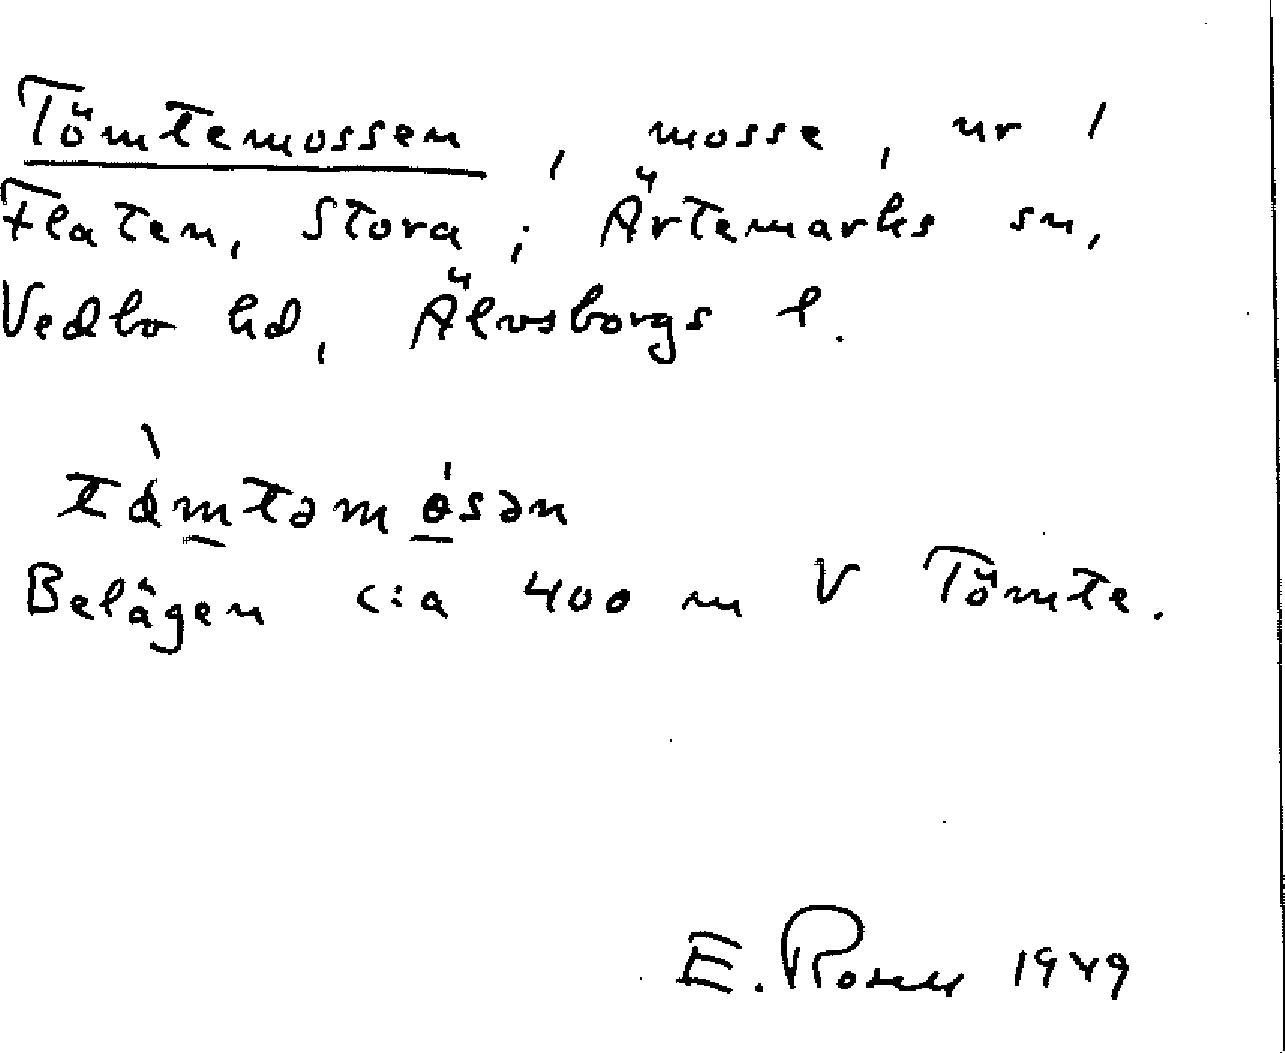 Tömtemossen, mosse, nr 1
Flaten, Stora; Ärtemarks sn,
Vedbo hd, Älvsborgs l.
tǻmtəmósən
Belägen c:a 400 m V Tömte.
E. Rosell 1949